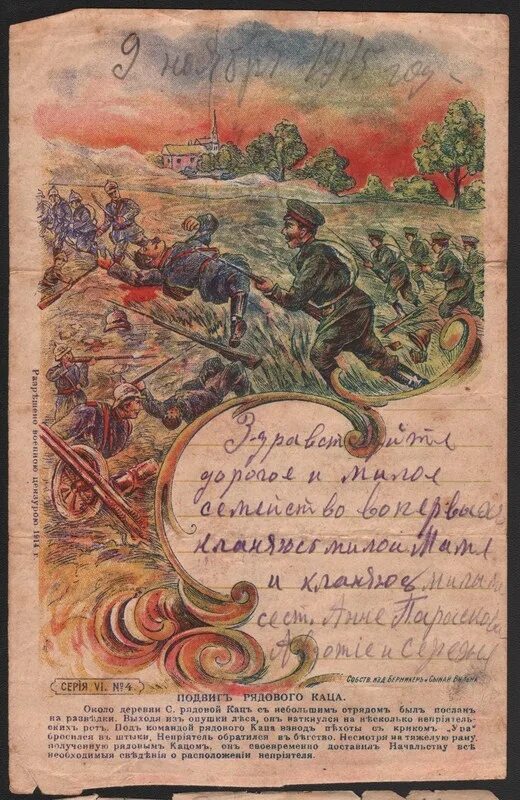 9 ноября 1915 год
Здравствуйте
дорогое и милое
семейство вопервых
кланяюсь милой Маме
и кланяюс милым
сест. Анне Парасков
Авдотие и Сереже
Разрѣшено военною цензурою 1914 г.
СЕРІЯ VI. №4.
СОБСТВ. ИЗД. БЕРНИКЕРЪ и СЫНАИ ВИЛЬНА
ПОДВИГЪ РЯДОВОГО КАЦА.
Около деревни С. рядовой Кацъ съ небольшимъ отрядомъ былъ посланъ
на развѣдки. Выходя изъ опушки лѣса, онъ наткнулся на нѣсколько непріятель-
скихъ ротъ. Подъ командой рядового Каца взводъ пѣхоты съ крикомъ „Ура"
бросился въ штыки, Непріятель обратился въ бѣгство. Несмотря на тяжелую рану
полученную рядовымъ Кацомъ, онъ своевременно доставилъ Начальству всѣ
необходимыя свѣдѣнія о расположеніи непріятеля.